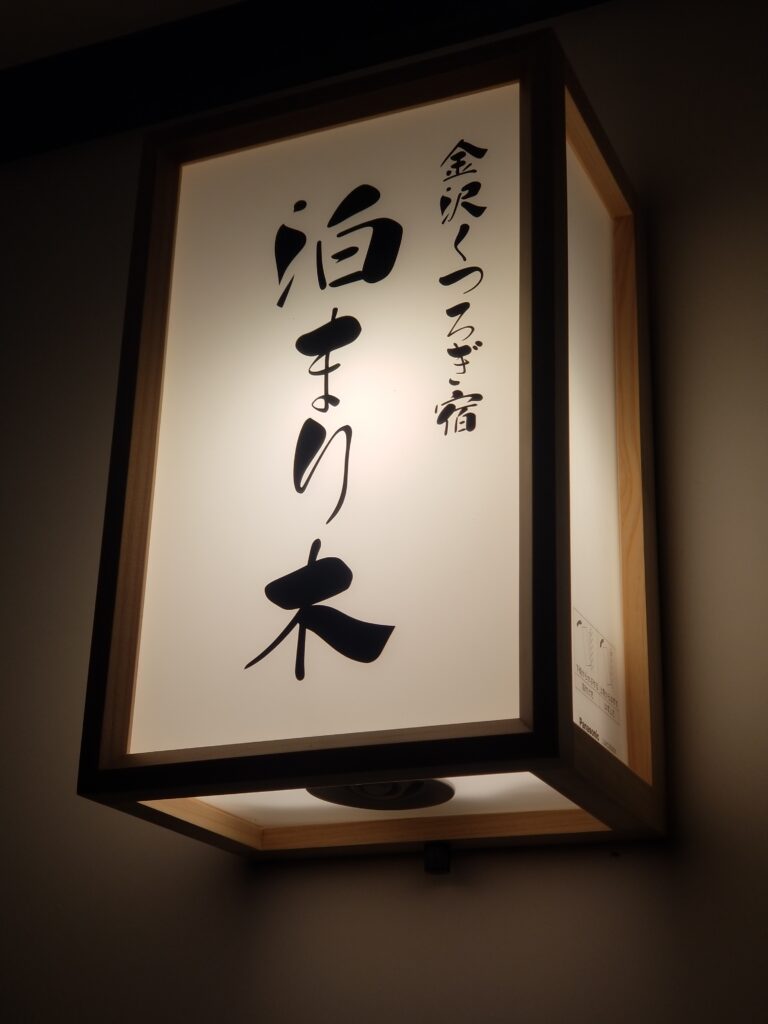 金沢くつろぎ宿
泊まり木
Panasonic